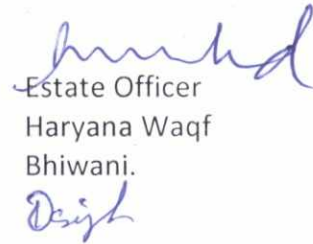 Estate Officer
Haryana Waqf
Bhiwani.